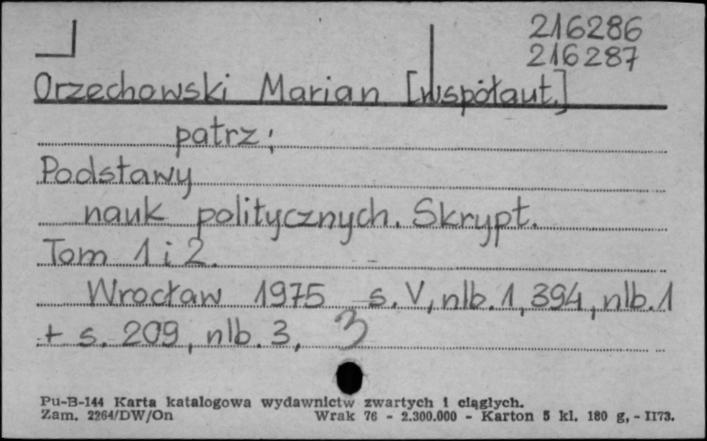 216286
216287
Orzechowski Marian [współaut.]
patrz:
Podstawy
nauk politycznych. Skrypt.
Tom 1 i 2.
Wrocław 1975 s. V, nlb. 1, 394, nlb. 1
+ s. 209, nlb. 3, 3
Pu-B-144 Karta katalogowa wydawnictw zwartych i ciągłych.
Zam. 2264/DW/On Wrak 76 - 2.300.000 - Karton 5 kl. 180 g, - II73.